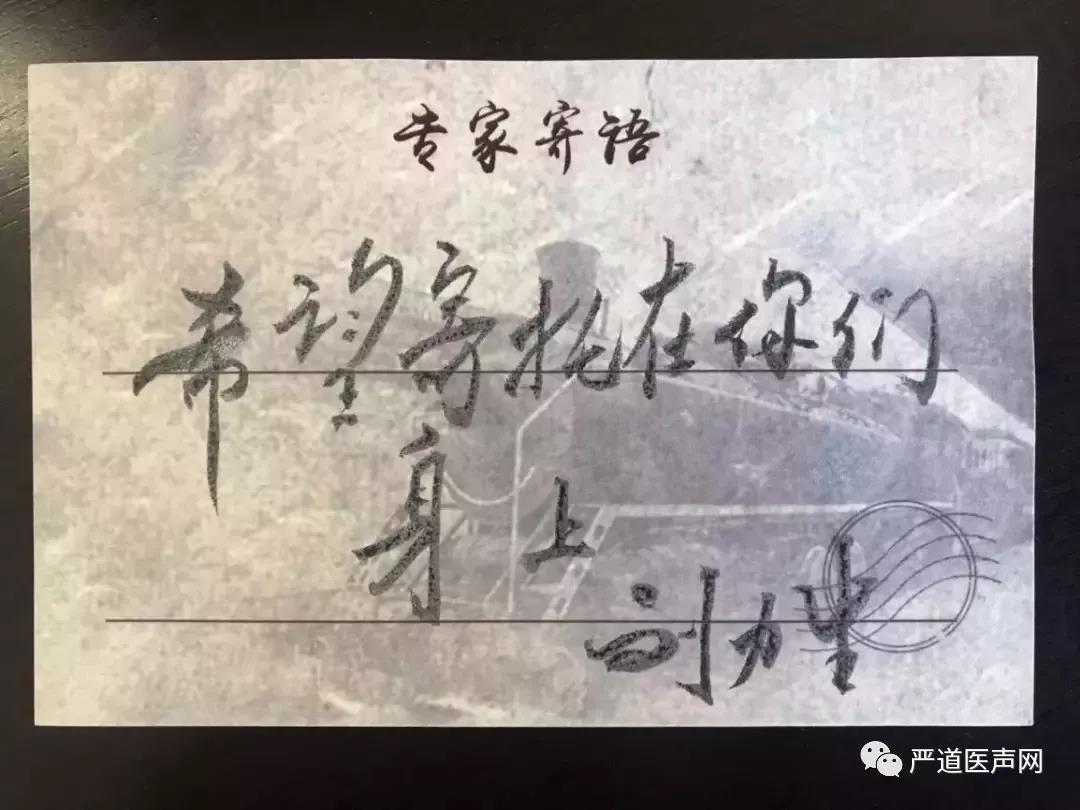 专家寄语
希望寄托在你们
身上
刘力生
严道医声网